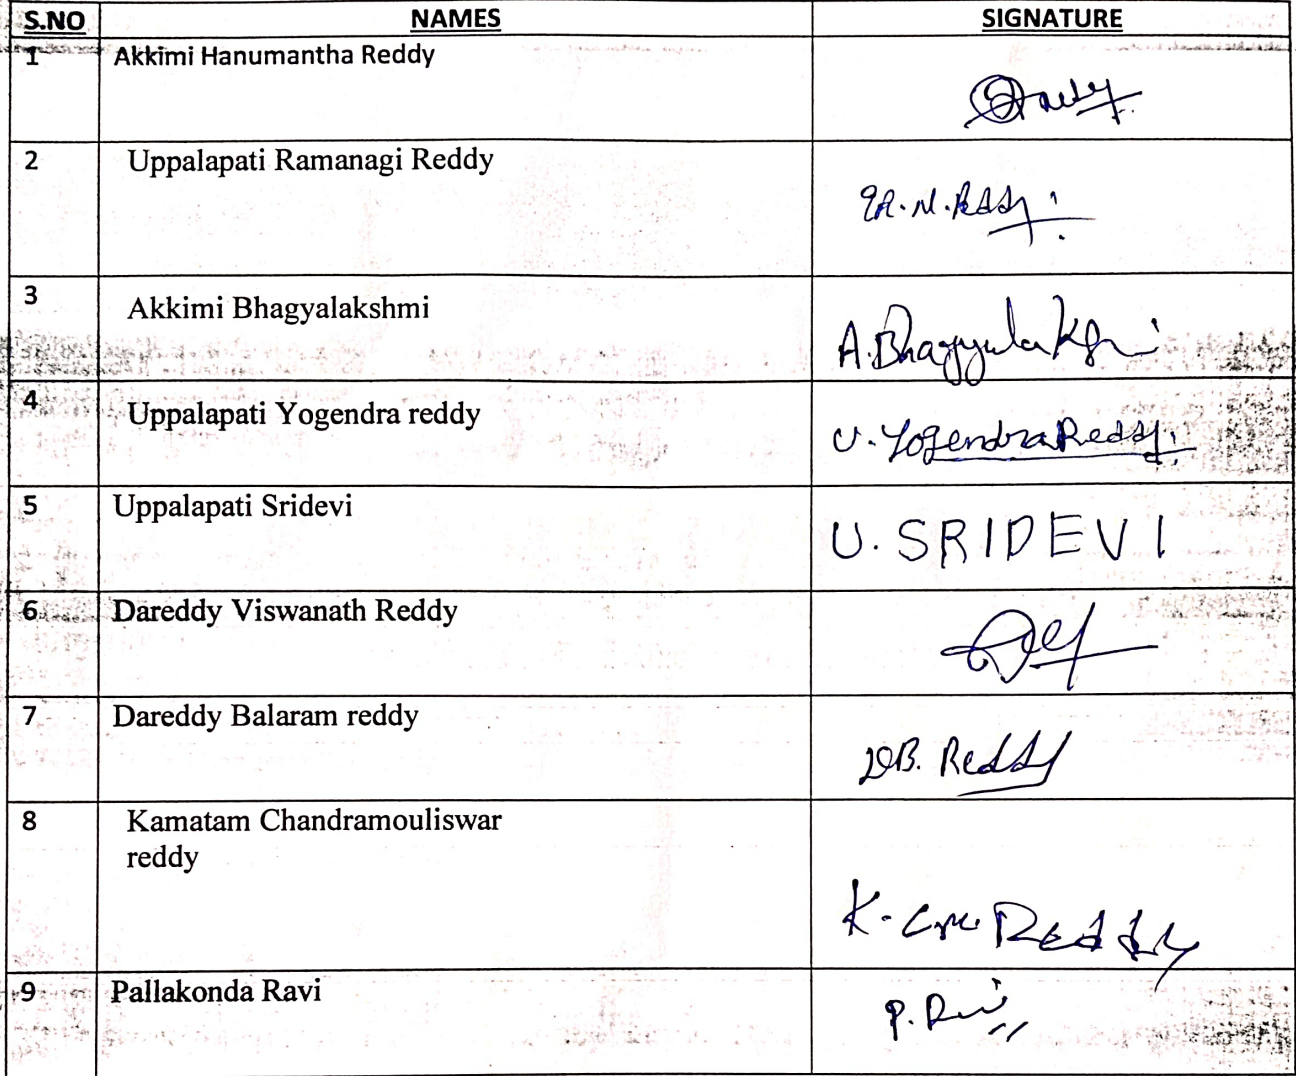 S.NO NAMES SIGNATURE
1 Akkimi Hanumantha Reddy
2 Uppalapati Ramanagi Reddy
3 Akkimi Bhagyalakshmi A.Bhagyalakshmi
4 Uppalapati Yogendra reddy U. Yogendra Reddy
5 Uppalapati Sridevi U. SRIDEVI
6 Dareddy Viswanath Reddy
7 Dareddy Balaram reddy DB. Reddy
8 Kamatam Chandramouliswar
reddy
K. CM Reddy
9 Pallakonda Ravi P. Ravi